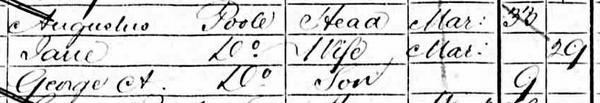 Augustus Poole Head Mar: 33
Jane Do Wife Mar: 29
George A. Do Son 9